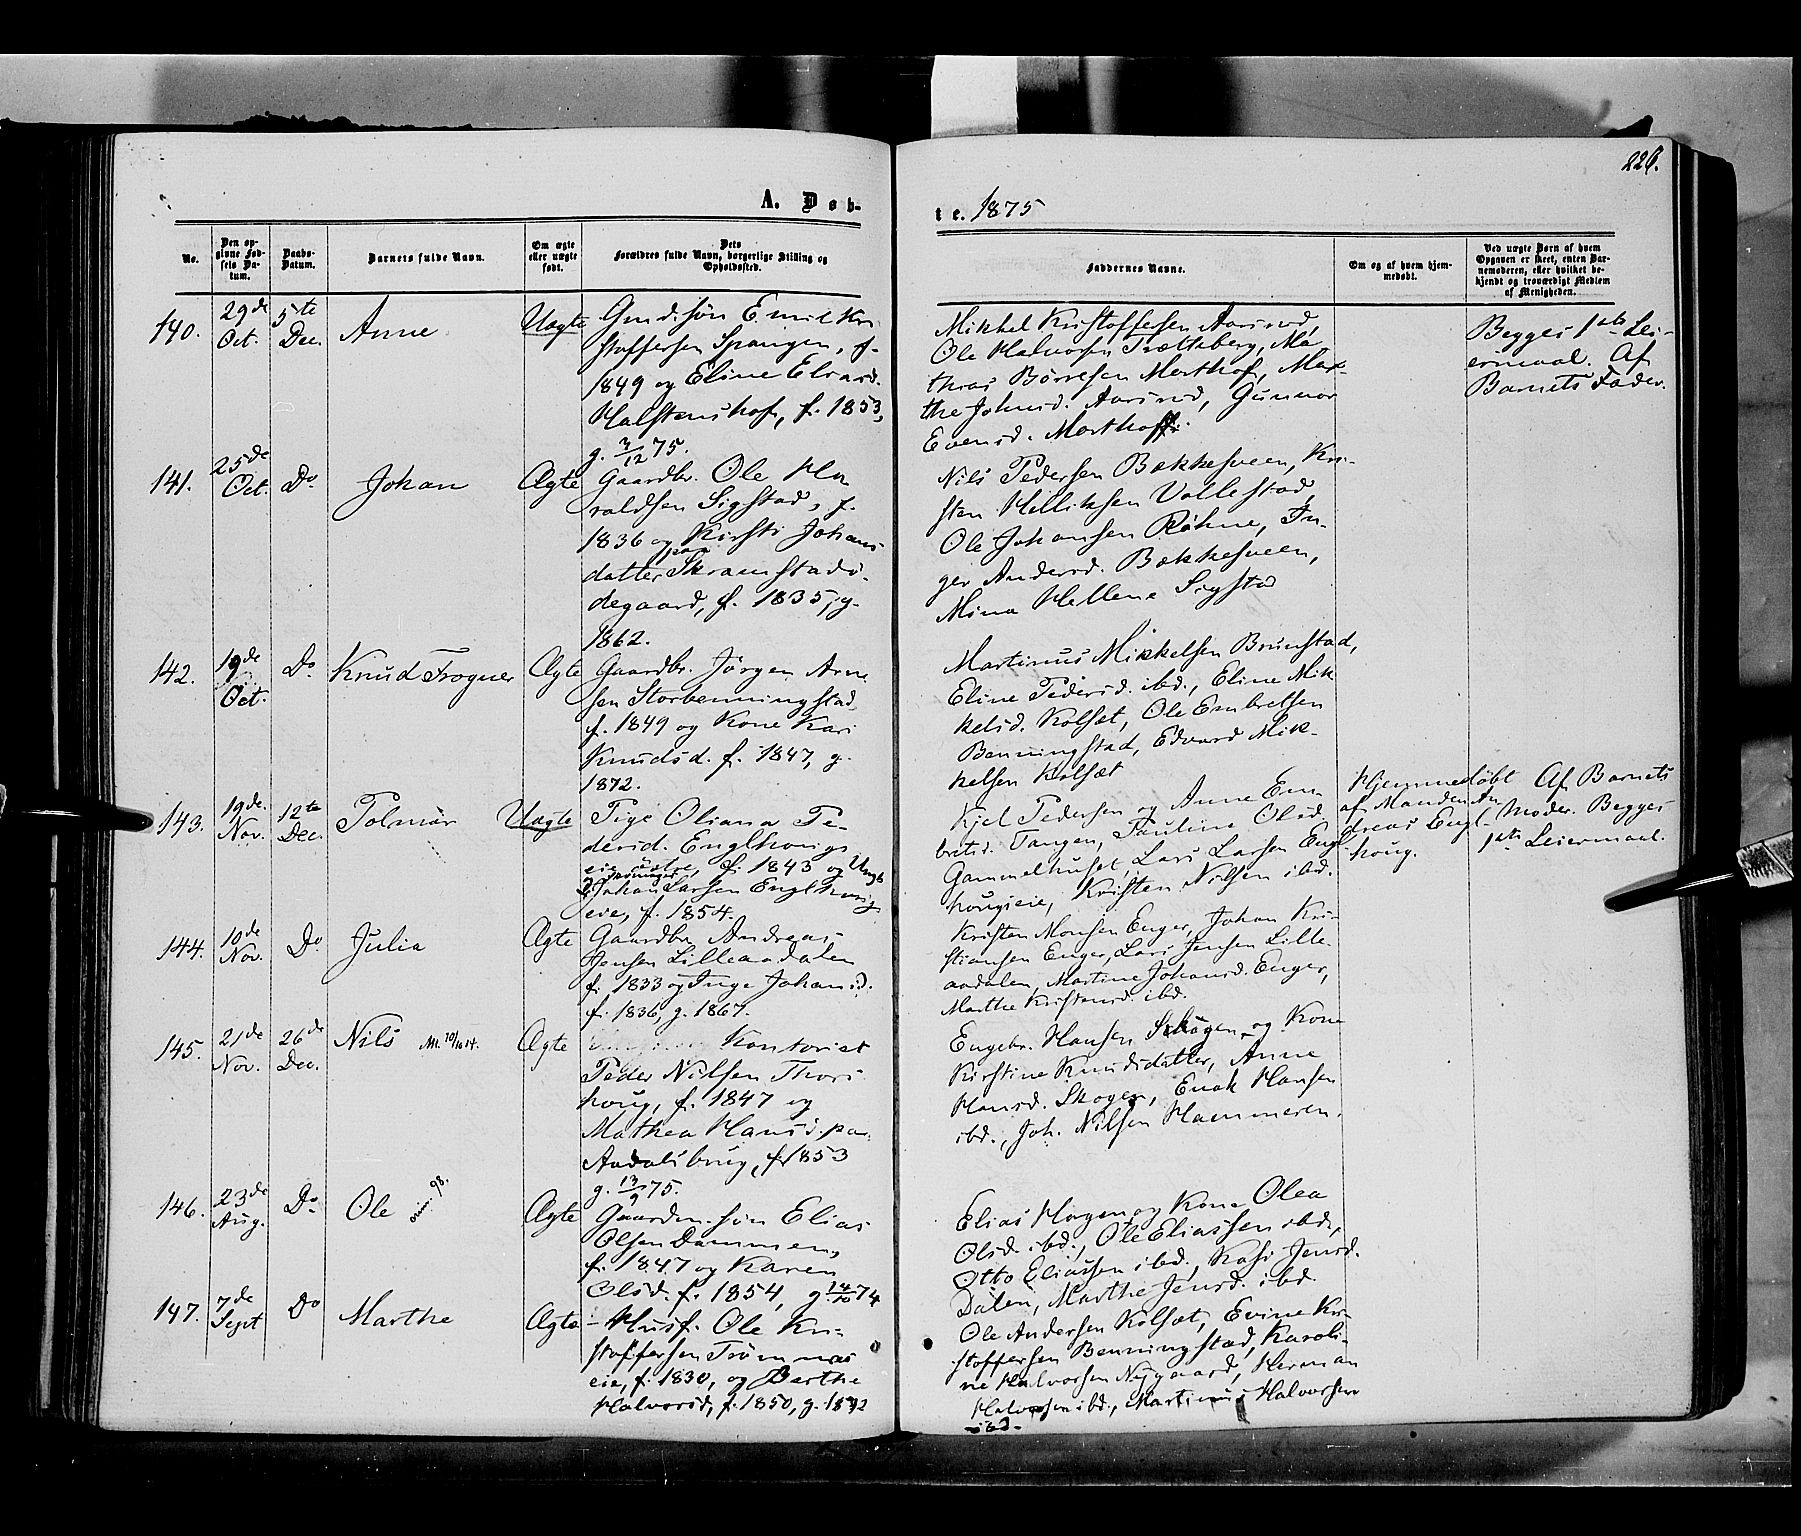 226.
A. Døb-
te. 1875
No.
Den op-
givne Fød-
sels Da-
tum.
Daabs-
Datum.
Barnets fulde Navn.
Om ægte
eller uægte
født.
Dets
Forældres fulde Navn, borgerlige Stilling og
Opholdssted.
Faddernes Navne.
Om og af hvem hjem-
medøbt.
Ved uægte Børn af hvem
Opgaven er skeet, enten Bar-
nemoderen, eller hvilket be-
kjendt og troværdigt Medlem
af Menigheden.
140.
29de
Oct.
5te
Dec.
Anne
Uægte
Gmd.søn Emil Kri-
stoffersen Spangen, f.
1849 og Eline Elvasd.
Halstenshof, f. 1853,
g. 3/12 75.
Mikkel Kristoffersen Aarsrud,
Ole Halvorsen Trætteberg, Ma-
thias Børresen Morthof, Mar-
the Johnsd. Aarsrud, Gunnor
Evensd. Morthoff.
Begges 1ste Lei-
ermaal. Af
Barnets Fader.
141.
25de
Oct.
Do
Johan
Ægte
Gaardbr. Ole Ha-
raldsen Sigstad, f.
1836 og Kirsti Johans-
datter paa Skramstadø-
degaard, f. 1835, g.
1862.
Nils Pedersen Bækkesveen, Kri-
sten Helliksen Vollestad,
Ole Johansen Røhne, In-
ger Andersd. Bækkesveen,
Mina Hellene Sigstad
142.
19de
Oct.
Do
Knud Trogner
Ægte
Gaardbr. Jørgen Arne
sen Storbenningstad
f. 1849 og Kone Kari
Knudsd. f. 1847, g.
1872.
Martinus Mikkelsen Brunstad,
Eline Pedersd. ibd., Eline Mik
kelsd. Kolsæt, Ole Embretsen
Benningstad, Edvard Mik-
kelsen Kolsæt
143.
19de
Nov.
12te
Dec.
Tolmar
Uægte
Pige Oliana Pe-
dersd. Englhougs
eie østre, f. 1843 og Ungk
Johan Larsen Englhoug
eie, f. 1854.
Kjel Pedersen og Anne Em-
bretsd. Tangen, Pauline Olsd.
Gammelhuset, Lars Larsen Engl-
hougseie, Kristen Nilsen ibd.
Hjemmedøbt
af Manden An
dreas Engl-
houg.
Af Barnets
Moder. Begges
1ste Leiermaal.
144.
10de
Nov.
Do
Julia
Ægte
Gaardbr. Andreas
Jensen Lilleaadalen
f. 1833 og Inge Johansd.
f. 1836, g. 1867.
Kristen Monsen Enger, Johan Kri-
stiansen Enger, Lars Jensen Lille-
aadalen, Martine Johansd. Enger,
Marthe Kristensd. ibd.
145.
21de
Nov.
26de
Dec.
Nils
Att. 10/10 14.
Ægte
Kontorist
Peder Nilsen Thors
houg, f. 1847 og
Mathea Hansd. paa
Aadalsbrug, f. 1853
g. 13/9 75.
Engebr. Hansen Skogen og Kone
Kirstine Knudsdatter, Anne
Hansd. Skogen, Enok Hansen
ibd., Joh. Nilsen Hammeren.
146.
23de
Aug.
Do
Ole
98.
Ægte
Gaardm.søn Elias
Olsen Dammen,
f. 1847 og Karen
Olsd. f. 1854, g. 14/10 74
Elias Hagen og Kone Olea
Olsd. ibd., Ole Eliassen ibd.,
Otto Eliassen ibd., Kasi Jensd.
Dalen, Marthe Jensd. ibd.
147.
7de
Sept
Do
Marthe
Ægte
Husf. Ole Kri-
stoffersen Trømnæs
eie, f. 1830, og Berthe
Halvorsd, f. 1850, g. 1872
Ole Andersen Kolsæt, Evine Kri-
stoffersen Benningstad, Karoli-
ne Halvorsen Nygaard, Herman
Halvorsen ibd., Martinus Halvorsen
ibd.